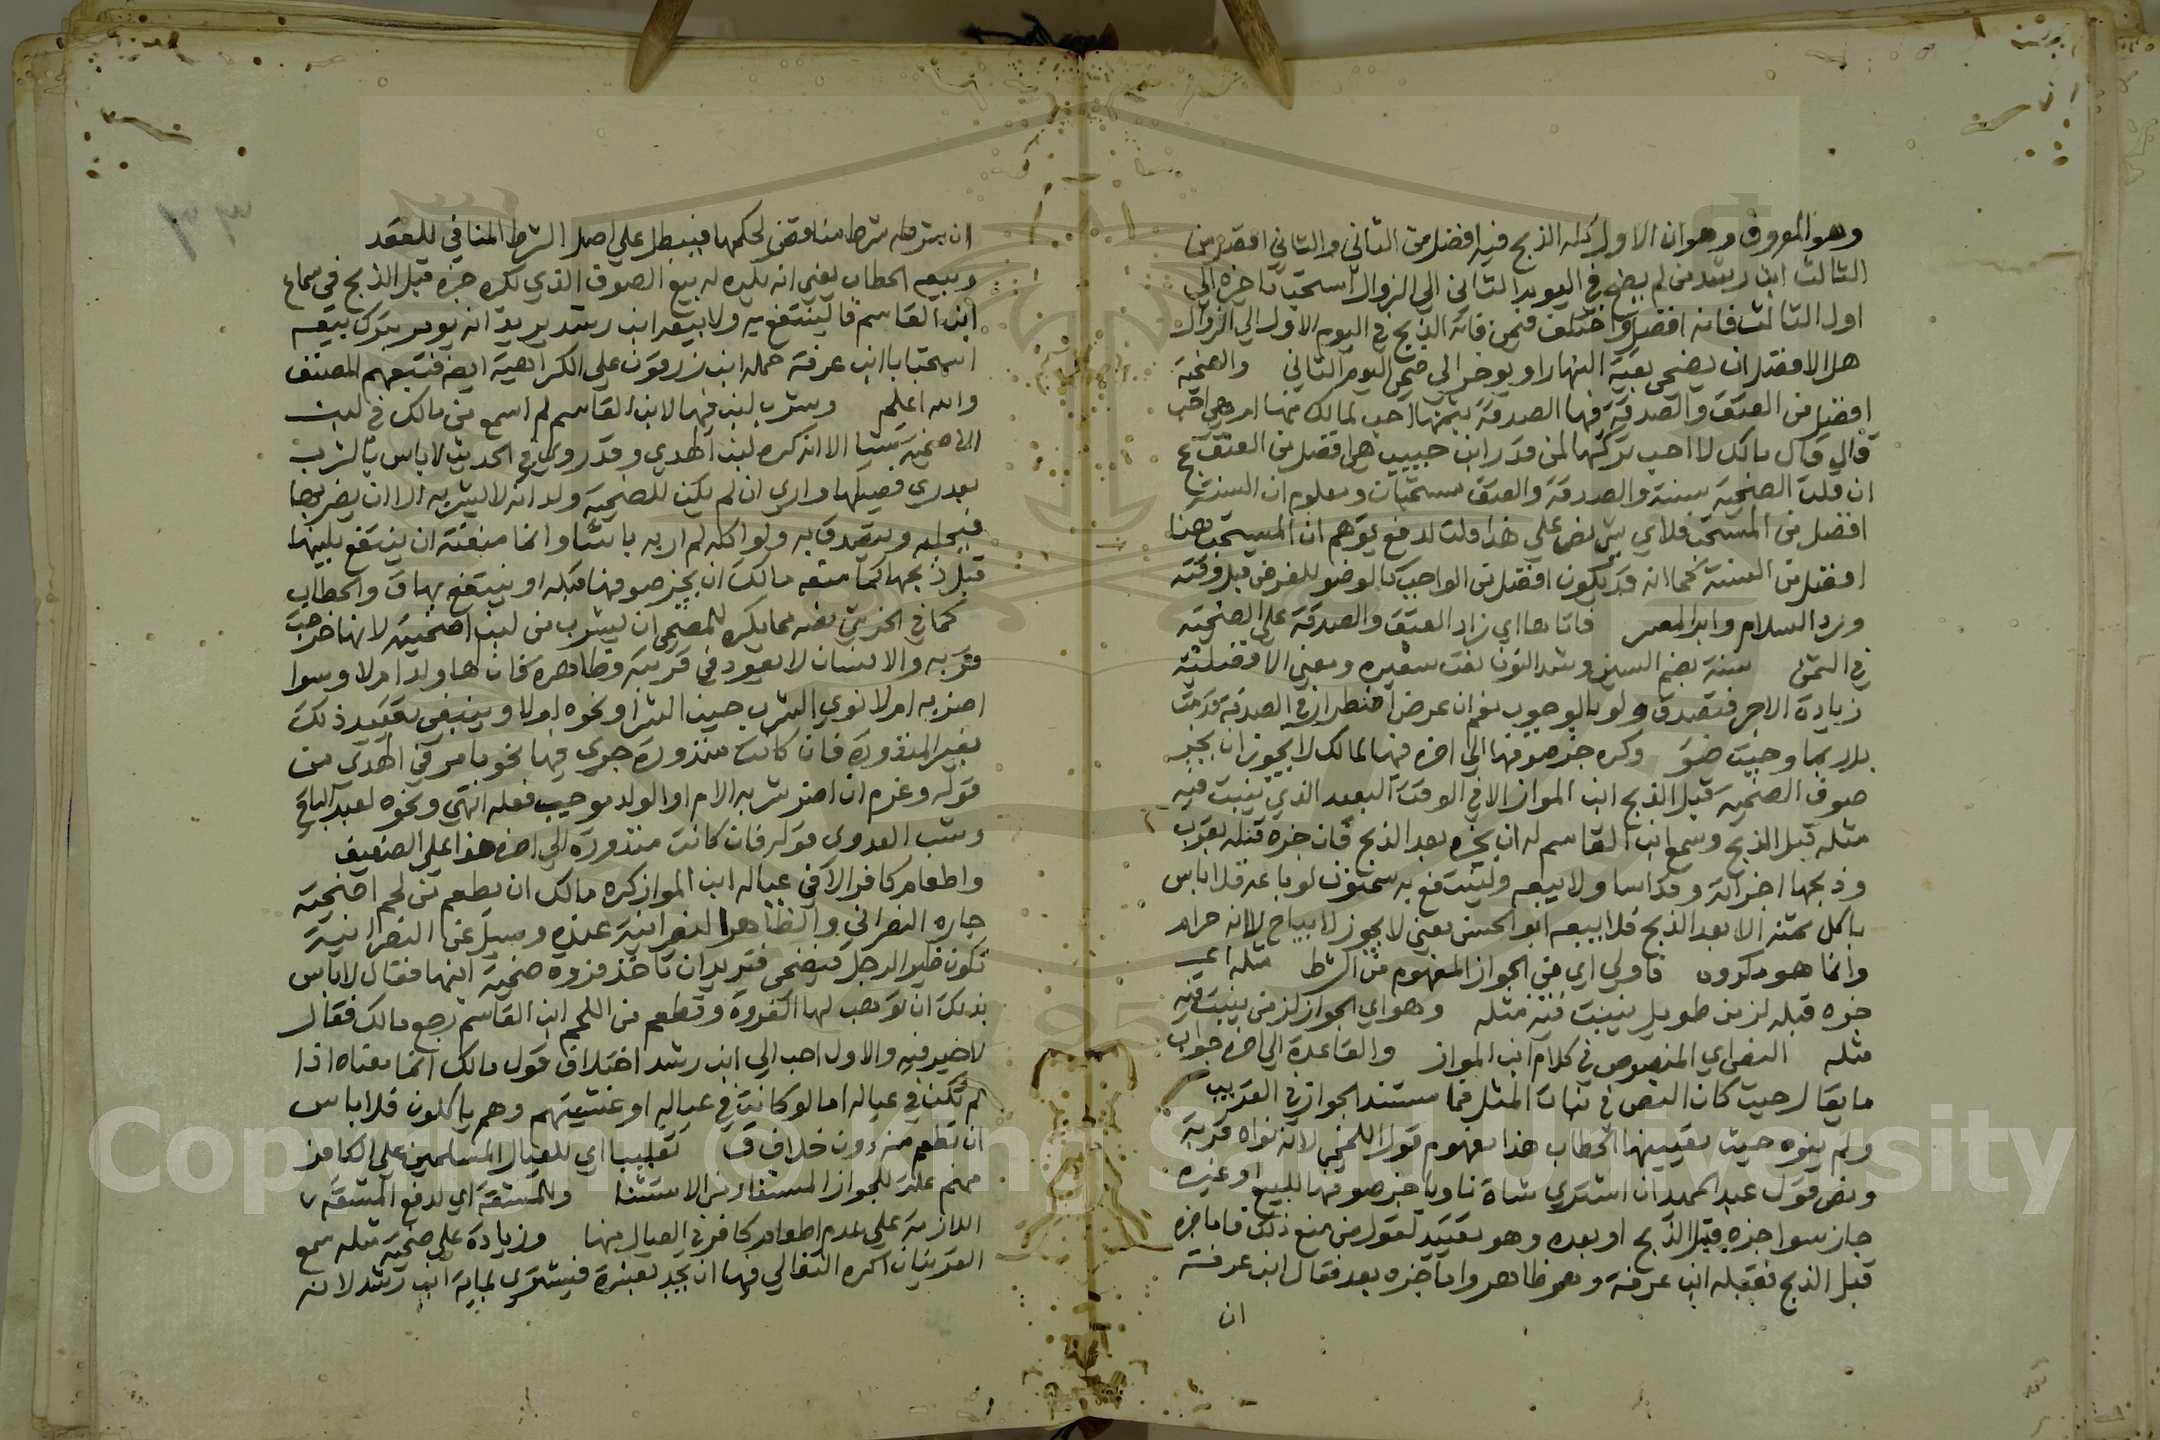 وهو المعروف وهو ان الاول كله الذبح فيه افضل من الثاني والثاني افضل من
الثالث ابن رشد من لم يضح في اليوم الثاني الي الزوال استحب تاخره الي
اول الثالث فانه افضل واختلف فيمن فاته الذبح في اليوم الاول الي الزوال
هل الافضل ان يضحي بقية النهار او يوخر الي ضحي اليوم الثاني والضحية
افضل من العتق والصدقة فيها الصدقة بثمنها احب لمالك منها ام هي احب
قال قال مالك لا احب تركها لمن قدر ابن حبيب هي افضل من العتق عج
ان قلت الضحية سنة والصدقة والعتق مستحبان ومعلوم ان السنة
افضل من المستحب فلاي شي نص علي هذا قلت لدفع توهم ان المستحب هنا
افضل من السنة كما انه قد يكون افضل من الواجب كالوضو للفرض قبل وقته
ورد السلام وابرا المعسر فان اي زاد العتق والصدقة علي الضحية
في الثمن سنة بضم السين وشد النون نعت شعيره ومعني الافضلية
زيادة الاجر فتصدق ولو بالوجوب نعم ان عرض اضطرار في الصدقة قدمت
بل ربما وجبت ضو وكره جز صوفها الي اخره فيها لمالك لا يجوز ان يجز
صوف الضحية قبل الذبح ابن المواز الا في الوقت البعيد الذي ينبت فيه
مثله قبل الذبح وسمع ابن القاسم له ان يجزه بعد الذبح فان جزه قبله بقرب
وذبحها اجزاته وقد اسا ولا يبيعه ولينتفع به سحنون لو باعه فلا باس
باكل ثمنه الا بعد الذبح فلا يبيعه ابو الحسن معني لا يجوز لا يباح لا انه حرام
وانما هو مكروه فاولي اي من الجواز المفهوم من الشرط مثله اي
جزه قبله لزمن طويل ينبت فيه مثله وهو اي الجواز لزمن ينبت فيه
مثله النص اي المنصوص في كلام ابن المواز والقاعدة الي اخره جواب
ما يقال حيث كان النص في نبات المثل فما مستند الجواز في القريب
ولم ينوه حيث تعيينها الحطاب هذا مفهوم قول اللخمي لانه نواه قربة
ونص قول عبد الحميد ان اشتري شاة ناويا جز صوفها للبيع او غيره
جاز سوا جزه قبل الذبح او بعده وهو تقييد لقول من منع ذلك فاما جزه
قبل الذبح فقبله ابن عرفة وهو ظاهر واما جزه بعد فقال ابن عرفة
ان
ان شرطه شرط مناقض لحكمها فيبطل علي اصل الشرط المنافي للعقد
وبيعه الحطاب يعني انه يكره له بيع الصوف الذي يكره جزه قبل الذبح في سماع
ابن القاسم قال ينتفع به ولا يبيعه ابن رشد يريد انه يومر بترك بيعه
استحبابا ابن عرفة حمله ابن زرقون علي الكراهية ايضا فتبعهم المصنف
والله اعلم وشرب لبن فيها لابن القاسم لم اسمع من مالك في لبن
الاضحية شيا الا انه كره لبن الهدي وقد روي في الحديث لا باس بالشرب
بعد ري فصيلها واري ان لم يكن للضحية ولد انه لا يشربه الا ان يضر بها
فيحلبه ويتصدق به ولو اكله لم ار به باسا وانما منعته ان ينتفع بلبنها
قبل ذبحها كما منعه مالك ان يجز صوفها قبله او ينتفع بها ق والحطاب
كما في الخرشي نصه مما يكره للمضحي ان يشرب من لبن اضحيته لانها خرجت
قربه والانسان لا يعود في قربته وظاهره كان لها ولد ام لا وسوا
اضر به ام لا نوي الشرب حين الشرا ونحوه ام لا وينبغي تقييد ذلك
بغير المنذورة فان كانت منذورة جري فيها نحو ما مر في الهدي من
قوله وغرم ان اضر شربه الام او الولد موجب فعله انتهي ونحوه لعبد الباقي
وكتب العدوي قوله فان كانت منذورة الي اخره هذا علي الضعيف
واطعام كافر الا في عياله ابن المواز كره مالك ان يطعم من لحم اضحيته
جاره النصراني والظاهر النصرانية عنده وسيل عن النصرانية
تكون ظير الرجل فيضحي فتريد ان تاخذ فروة ضحية ابنها فقال لا باس
بذلك ان توهب لها الفروة وتطعم من اللحم ابن القاسم رجع مالك فقال
لا خير فيه والاول احب الي ابن رشد اختلاف قول مالك انما معناه اذا
لم تكن في عياله اما لو كانت في عياله او غشيتهم وهم ياكلون فلا باس
ان تطعم منه دون خلاف ق تغليبا اي للعيال المسلمين علي الكافر
منهم علة للجواز المستفاد من الاستثنا وللمشقة اي لدفع المشقة
اللازمة علي عدم اطعام كافر في العيال منها وزيادة علي ضحية مثله سمع
القرينان اكره التغالي فيها ان يجد بعشرة فيشتري بماية ابن رشد لانه